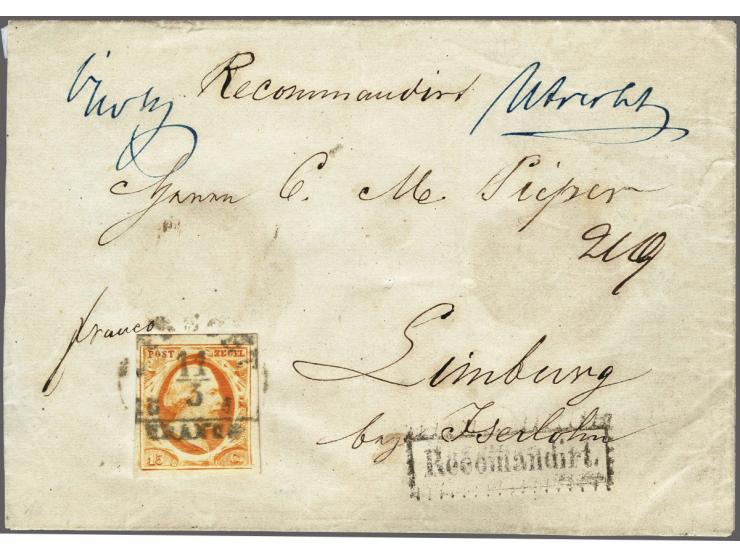 Recommandirt
Utrecht
Herrn C. M. Pieper
219
franco
Limburg
bey Iserlohn
POST ZEGEL
11
3
FRANCO
15 C.
Recomandirt.